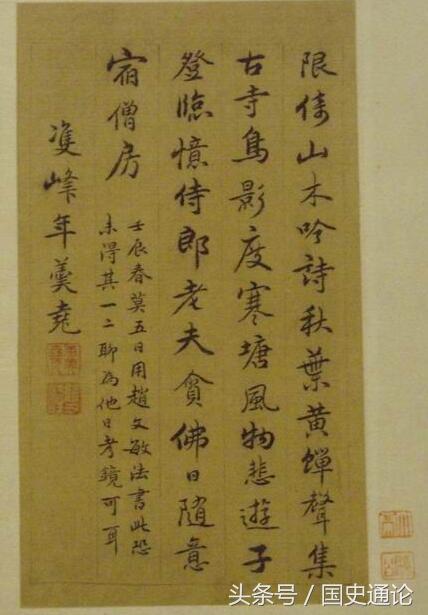 限倚山木吟詩秋葉黃蟬聲集
古寺鳥影度寒塘風物悲遊子
登臨憶侍郎老夫貪佛日隨意
宿僧房
壬辰春莫五日用趙文敏法書此恐
未得其一二聊為他日考鏡可耳
雙峰年羹堯
头条号 / 国史通论